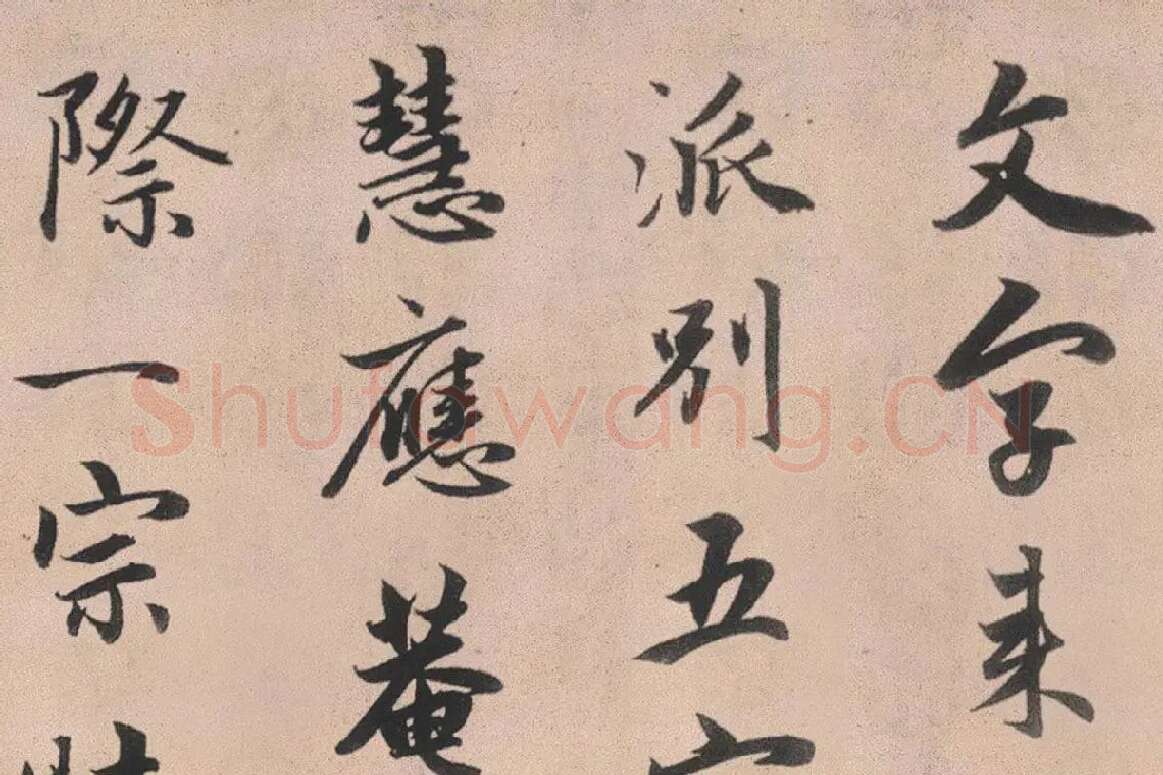 文字来
派別五宗
慧應菴
際一宗
Shufawang.CN